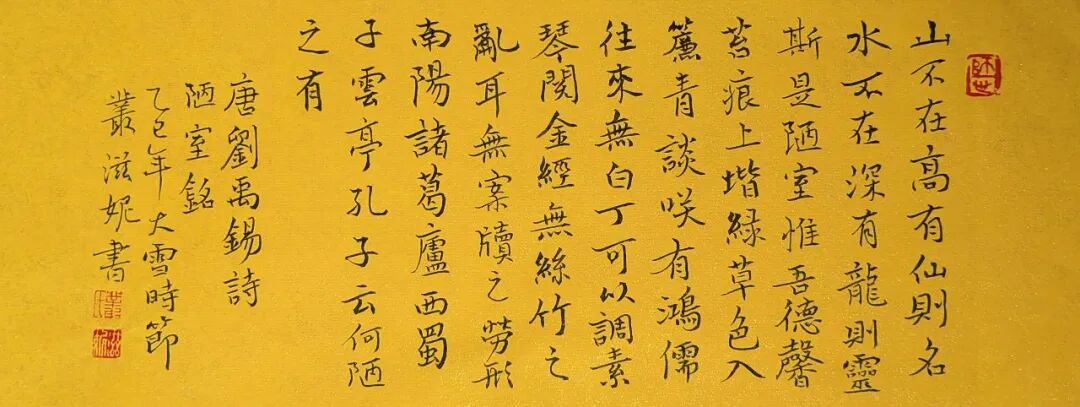 山不在高有仙則名
水不在深有龍則靈
斯是陋室惟吾德馨
苔痕上堦緑草色入
簾青談咲有鴻儒
往來無白丁可以調素
琴閱金經無絲竹之
亂耳無案牘之勞形
南陽諸葛廬西蜀
子雲亭孔子云何陋
之有
唐劉禹錫詩
陋室銘
乙巳年大雪時節
叢滋妮書